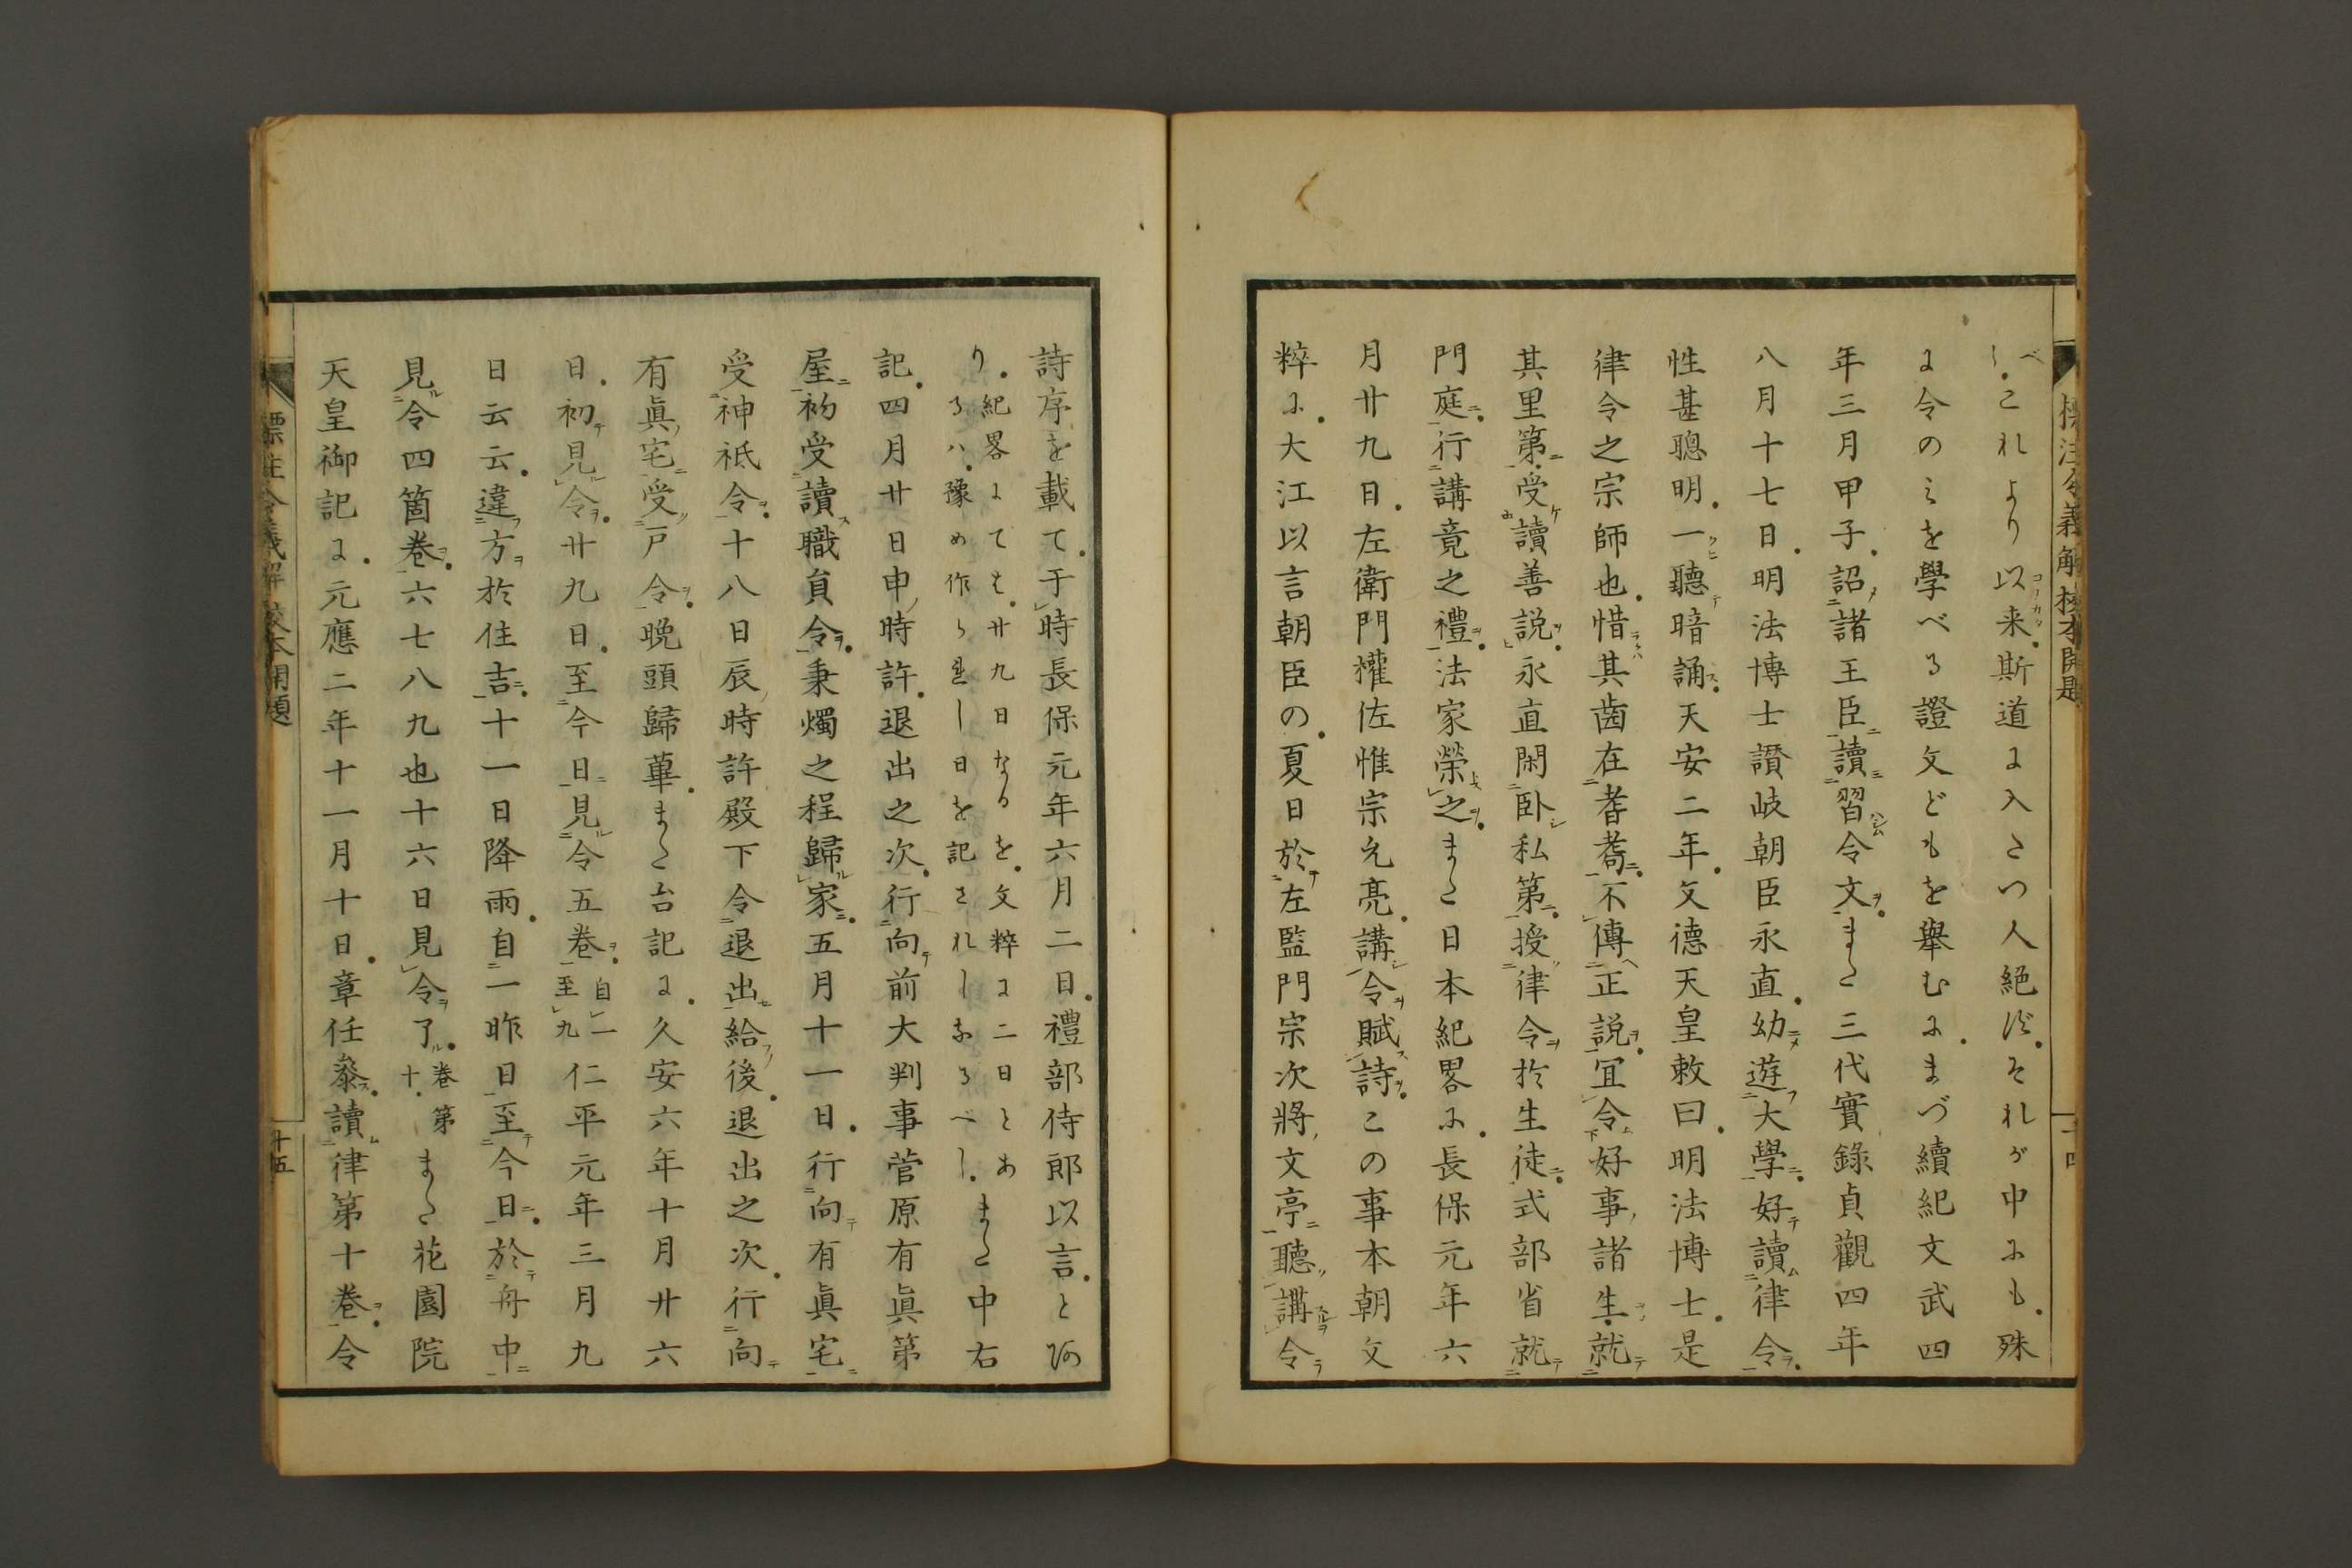 標注令義解校本開題
べし。これより以来。斯道に入たつ人絶ず。それが中にも。殊
に令のみを學べる證文どもを舉むに。まづ續紀文武四
年三月甲子。詔諸王臣讀習令文。また三代實錄貞觀四年
八月十七日。明法博士讃岐朝臣永直。幼遊大學。好讀律令。
性甚聰明。一聽暗誦。天安二年。文德天皇敕曰。明法博士。是
律令之宗師也。惜其齒在耆耈。不傳正説。宜令好事諸生。就
其里第。受讀善説。永直閑臥私第。授律令於生徒。式部省就
門庭。行講竟之禮。法家榮之。また日本紀畧に。長保元年六
月廿九日。左衛門權佐惟宗允亮。講令賦詩。この事本朝文
粹に。大江以言朝臣の。夏日於左監門宗次將文亭聽講令
詩序を載て。于時長保元年六月二日。禮部侍郎以言。とあ
り。紀畧にては。廿九日なるを。文粹に二日とあ
るハ。豫め作られし日を記されしなるべし。また中右
記。四月廿日申時許。退出之次。行向前大判事菅原有眞第
屋。初受讀職員令。秉燭之程歸家。五月十一日。行向有眞宅
受神祇令。十八日辰時許殿下令退出給後。退出之次。行向
有眞宅受戸令。晩頭歸華。また台記に。久安六年十月廿六
日。初見令。廿九日。至今日見令五卷。自一至九仁平元年三月九
日云云。違方於住吉。十一日降雨。自一昨日至今日。於舟中
見令四箇卷。六七八九也十六日見令了。卷第十。また花園院
天皇御記に。元應二年十一月十日。章任參。讀律第十卷。令
標注令義解校本開題
十五